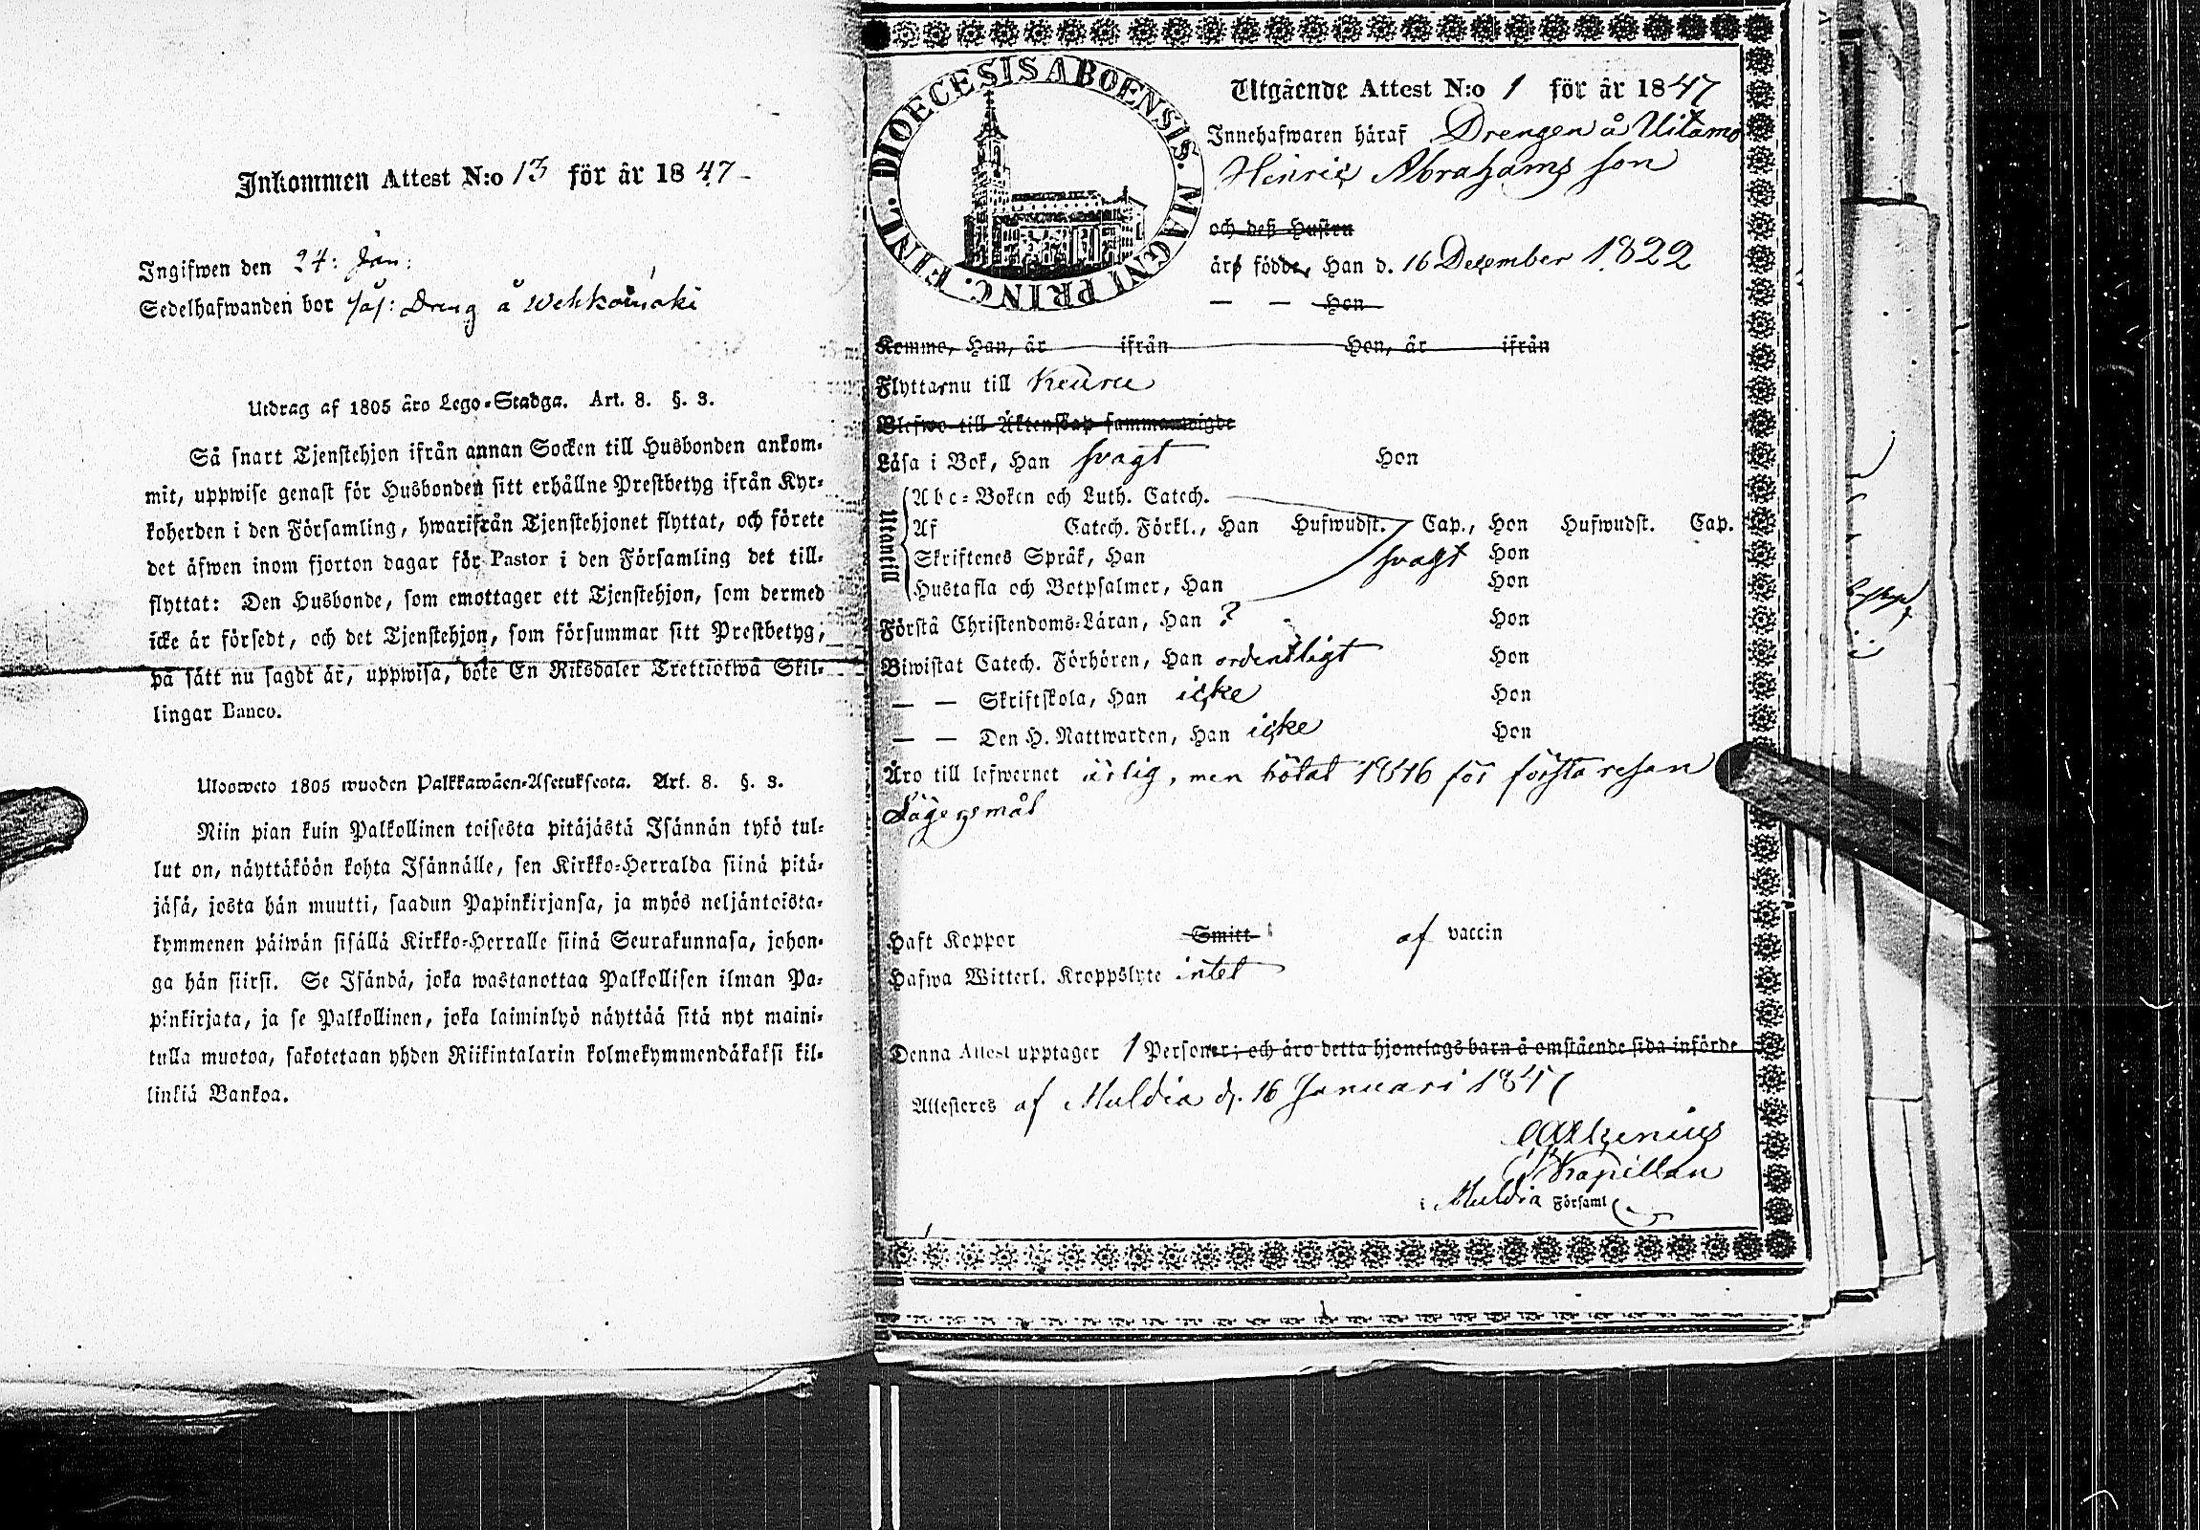 Inkommen Attest N:o 13 för år 1847
Ingifwen den 24: Jan:
Sedelhafwanden bor sås: Dreng å Wehkomäki
Utdrag af 1805 åro Lego-Stadga. Art. 8. §. 3.
Så snart Tjenstehjon ifrån annan Socken till Husbonden ankom-
mit, uppwise genast för Husbonden sitt erhållne Prestbetyg ifrån Kyr-
koherden i den Församling, hwarifrån Tjenstehjonet flyttat, och förete
det äfwen inom fjorton dagar för Pastor i den Församling det till-
flyttat: Den Husbonde, som emottager ett Tjenstehjon, som dermed
icke är försedt, och det Tjenstehjon, som försummar sitt Prestbetyg,
på sätt nu sagdt är, uppwisa, böte En Riksdaler Trettiotwå Skil-
lingar Banco.
Uloosweto 1805 wuoden Palkkawäen-Asetuksesta. Art. 8. §. 3.
Niin pian kuin Palkollinen toisesta pitäjästä Isännän tykö tul-
lut on, näyttäköön kohta Isännälle, sen Kirkko-Herralda siinä pitä-
jäsä, josta hän muutti, saadun Papinkirjansa, ja myös neljäntoista-
kymmenen päiwän sisällä Kirkko-Herralle siinä Seurakunnasa, johon-
ga hän siirsi. Se Isändä, joka wastanottaa Palkollisen ilman Pa-
pinkirjata, ja se Palkollinen, joka laiminlyö näyttää sitä nyt maini-
tulla muotoa, sakotetaan yhden Riikintalarin kolmekymmendäkaksi kil-
linkiä Bankoa.
DIOECESIS ABOENSIS. MAGNI PRINC. FINL.
Utgående Attest N:o 1 för år 1847
Innehafwaren håraf Drengen å Uitamo
Henric Abrahams son
och deß Hustru
äro födde, Han d. 16 December 1822
— — Hon
Komme, Han, år ifrån Hon, år ifrån
Flyttarnu till Keuru
Blefwo till Äktenskap sammanwigde
Läsa i Bok, Han svagt Hon
Utantill
Abc-Boken och Luth. Catech.
Af Catech. Förkl., Han Hufwudst. Cap., Hon Hufwudst. Cap.
Skriftenes Språk, Han svagt Hon
Hustafla och Botpsalmer, Han Hon
Förstå Christendoms-Läran, Han ? Hon
Biwistat Catech. Förhören, Han ordentligt Hon
— — Skriftskola, Han icke Hon
— — Den H. Nattwarden, Han icke Hon
Äro till lefwernet ärlig, men bötat 1846 för första resan
Lägersmål
Haft Koppor Smitt af vaccin
Hafwa Witterl. Kroppslyte intet
Denna Attest upptager 1 Personer; och äro detta hjonelags barn å omstående sida införde
Attesteres af Muldia d. 16 Januari 1847
Kapellan
i Muldia Församl